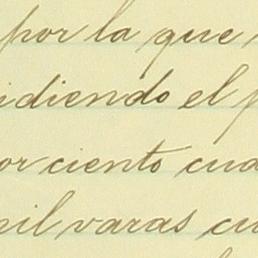 por la que
idiendo el p
or ciento cua
mil varas cu